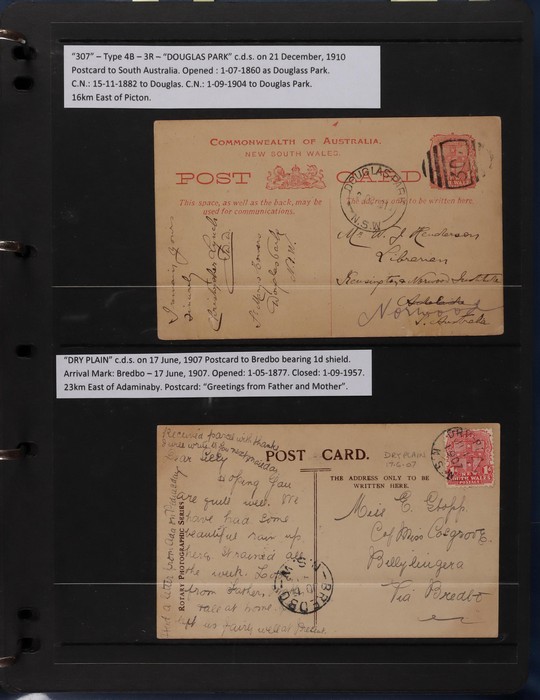 "307" – Type 4B – 3R – "DOUGLAS PARK" c.d.s. on 21 December, 1910
Postcard to South Australia. Opened : 1-07-1860 as Douglass Park.
C.N.: 15-11-1882 to Douglas. C.N.: 1-09-1904 to Douglas Park.
16km East of Picton.
COMMONWEALTH OF AUSTRALIA.
NEW SOUTH WALES.
POST CARD
This space, as well as the back, may be
used for communications.
The address only to be written here.
DOUGLAS PARK
N.S.W
307
Mr W. J. Henderson
Librarian
Kensington & Norwood Institute
Adelaide
Norwood
S. Australia
Sincerely
Christopher Lynch
Douglas Park
N.S.W.
"DRY PLAIN" c.d.s. on 17 June, 1907 Postcard to Bredbo bearing 1d shield.
Arrival Mark: Bredbo – 17 June, 1907. Opened: 1-05-1877. Closed: 1-09-1957.
23km East of Adaminaby. Postcard: "Greetings from Father and Mother".
POST CARD.
THE ADDRESS ONLY TO BE
WRITTEN HERE.
DRY PLAIN
17-6-07
ROTARY PHOTOGRAPHIC SERIES
Received parcel with thanks
Hoping you
are quite well. We
have had some
beautiful rain up
here, it rained all
the week.
from Father,
at home.
left us fairly well at present
Miss E. Stopp
C/o Miss Cosgrove
Billylingera
Via Bredbo
BREDBO
N.S.W